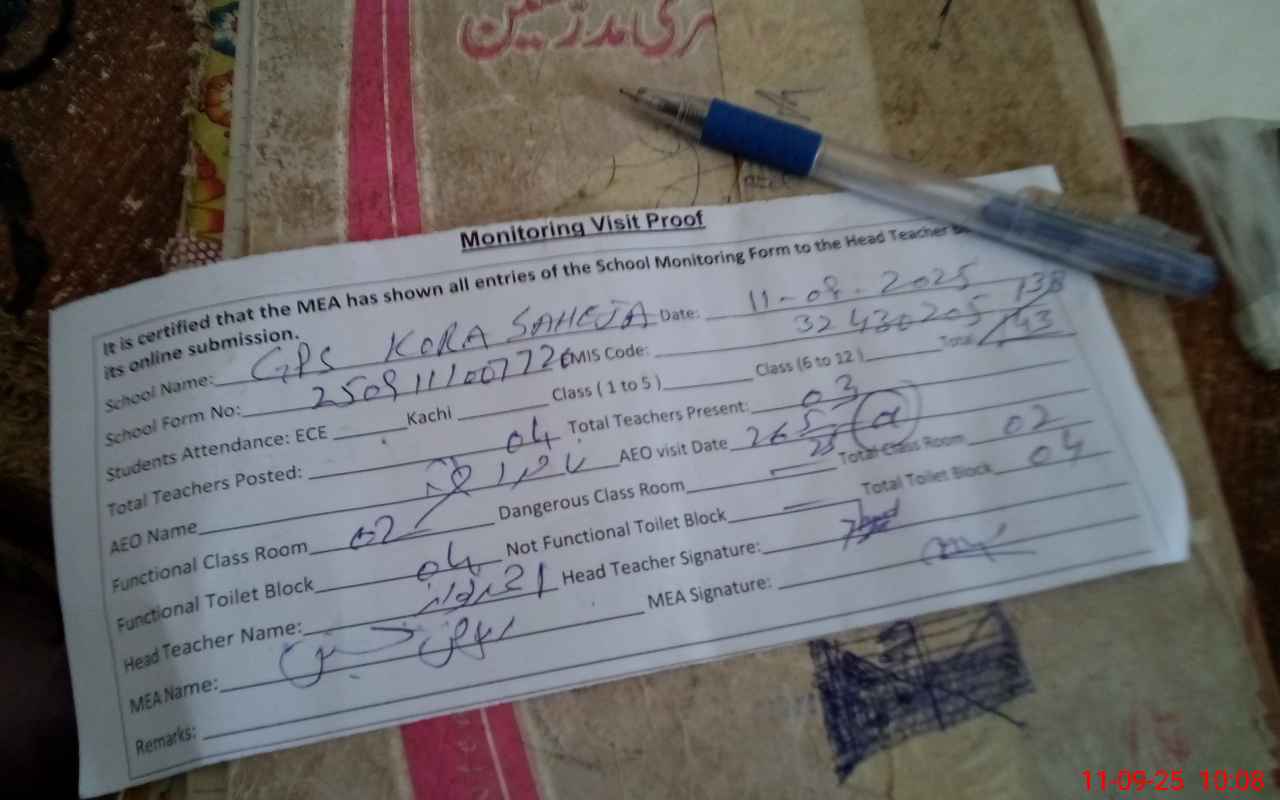 حاضری مدرسین
Monitoring Visit Proof
It is certified that the MEA has shown all entries of the School Monitoring Form to the Head Teacher
its online submission.
School Name: GPS KORA SAHEJA Date: 11-09-2025
School Form No: 2509111007726 EMIS Code: 32430205 138/143
Students Attendance: ECE Kachi Class ( 1 to 5 ) Class (6 to 12 ) Total
Total Teachers Posted: 04 Total Teachers Present: 03
AEO Name AEO visit Date 26 5 25 a
Functional Class Room 02 Dangerous Class Room — Total Class Room 02
Functional Toilet Block 04 Not Functional Toilet Block — Total Toilet Block 04
Head Teacher Name: Head Teacher Signature:
MEA Name: MEA Signature:
Remarks:
11-09-25 10:08